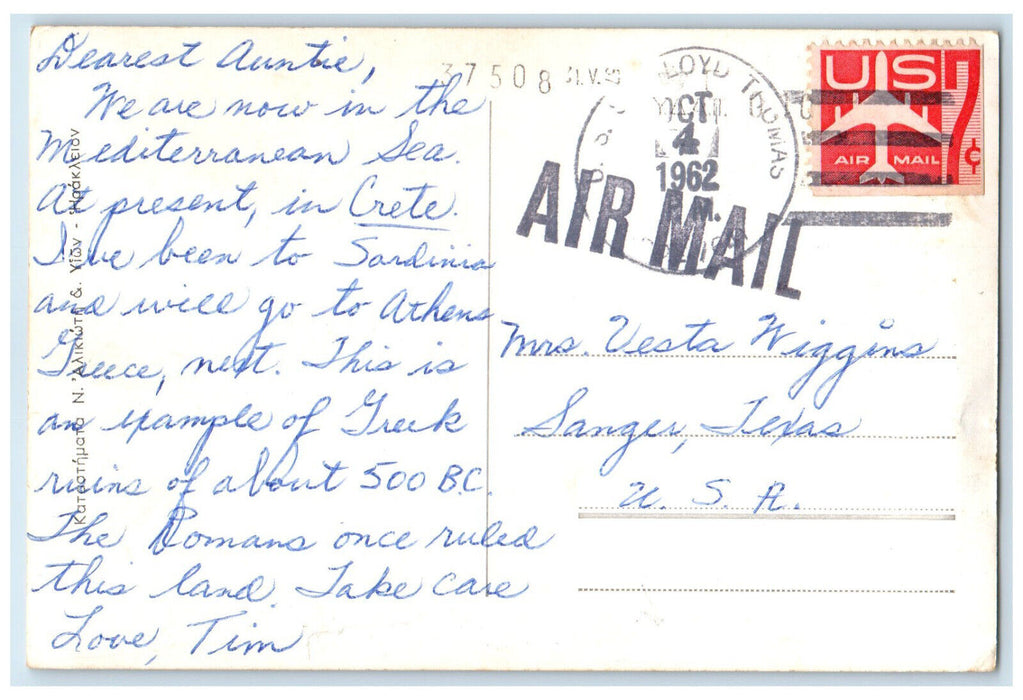 Dearest Auntie,
We are now in the
Mediterranean Sea.
At present, in Crete.
I've been to Sardinia
and will go to Athens
Greece, next. This is
an example of Greek
ruins of about 500 B.C.
The Romans once ruled
this land. Take care
Love, Tim
Καταστήματα Ν. Ἀλικιώτη & Υἱῶν - Ἡράκλειον
37508
LLOYD THOMAS
OCT
4
1962
M.
AIR MAIL
US
AIR MAIL
7¢
Mrs. Vesta Wiggins
Sanger, Texas
U. S. A.